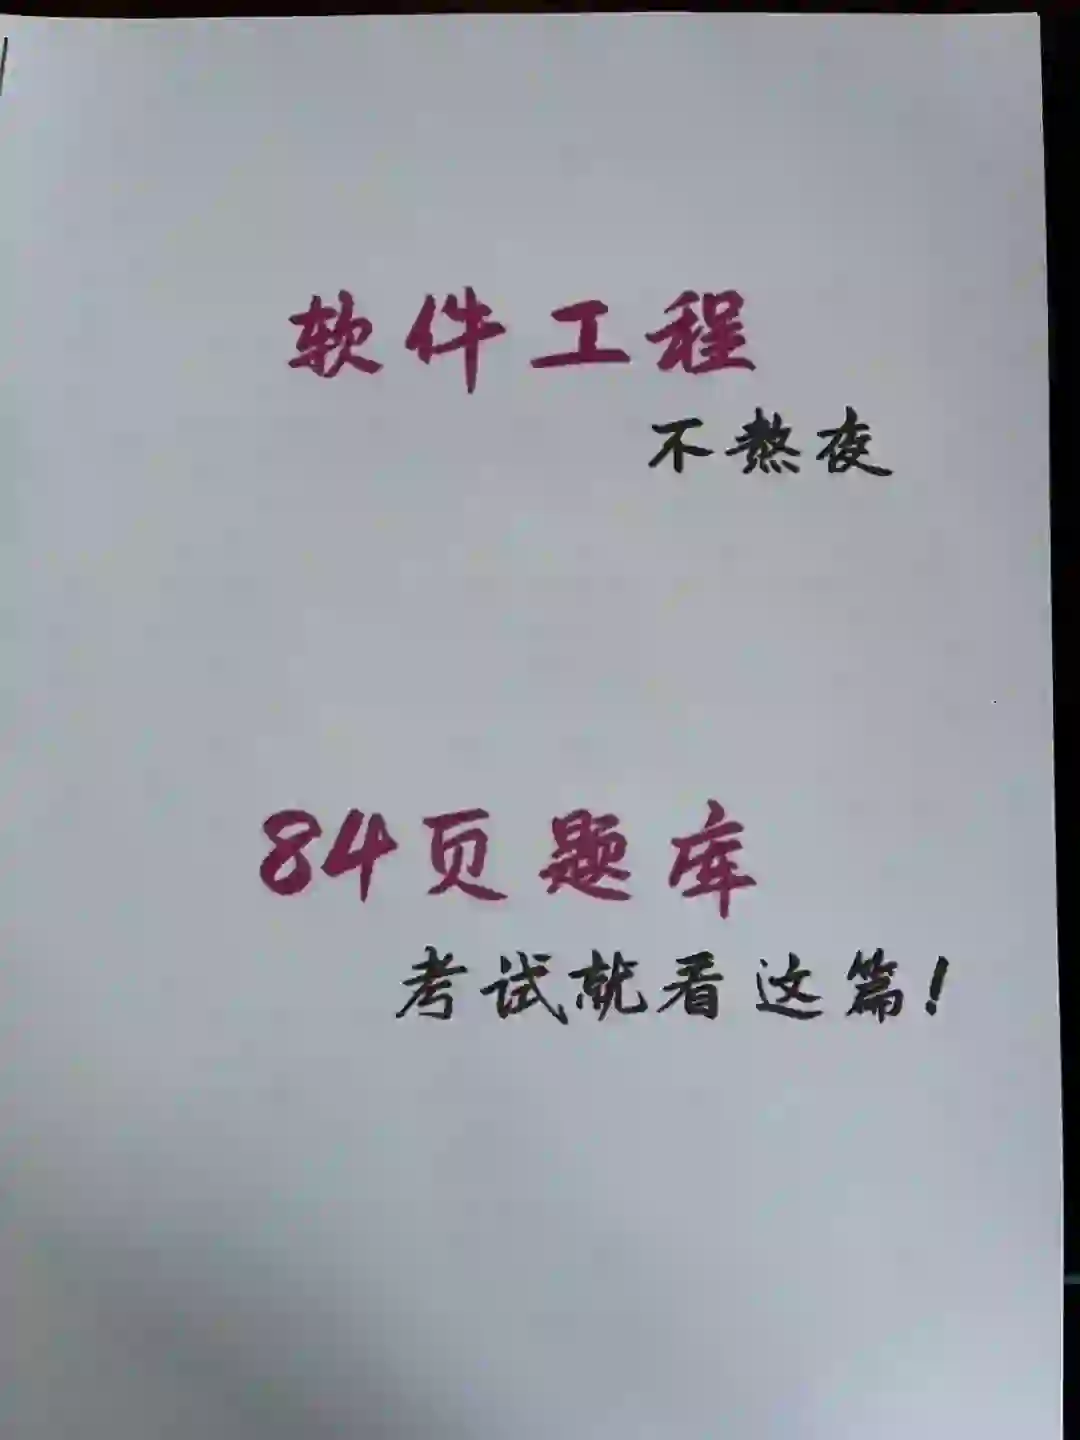 软件工程
不熬夜
84页题库
考试就看这篇!